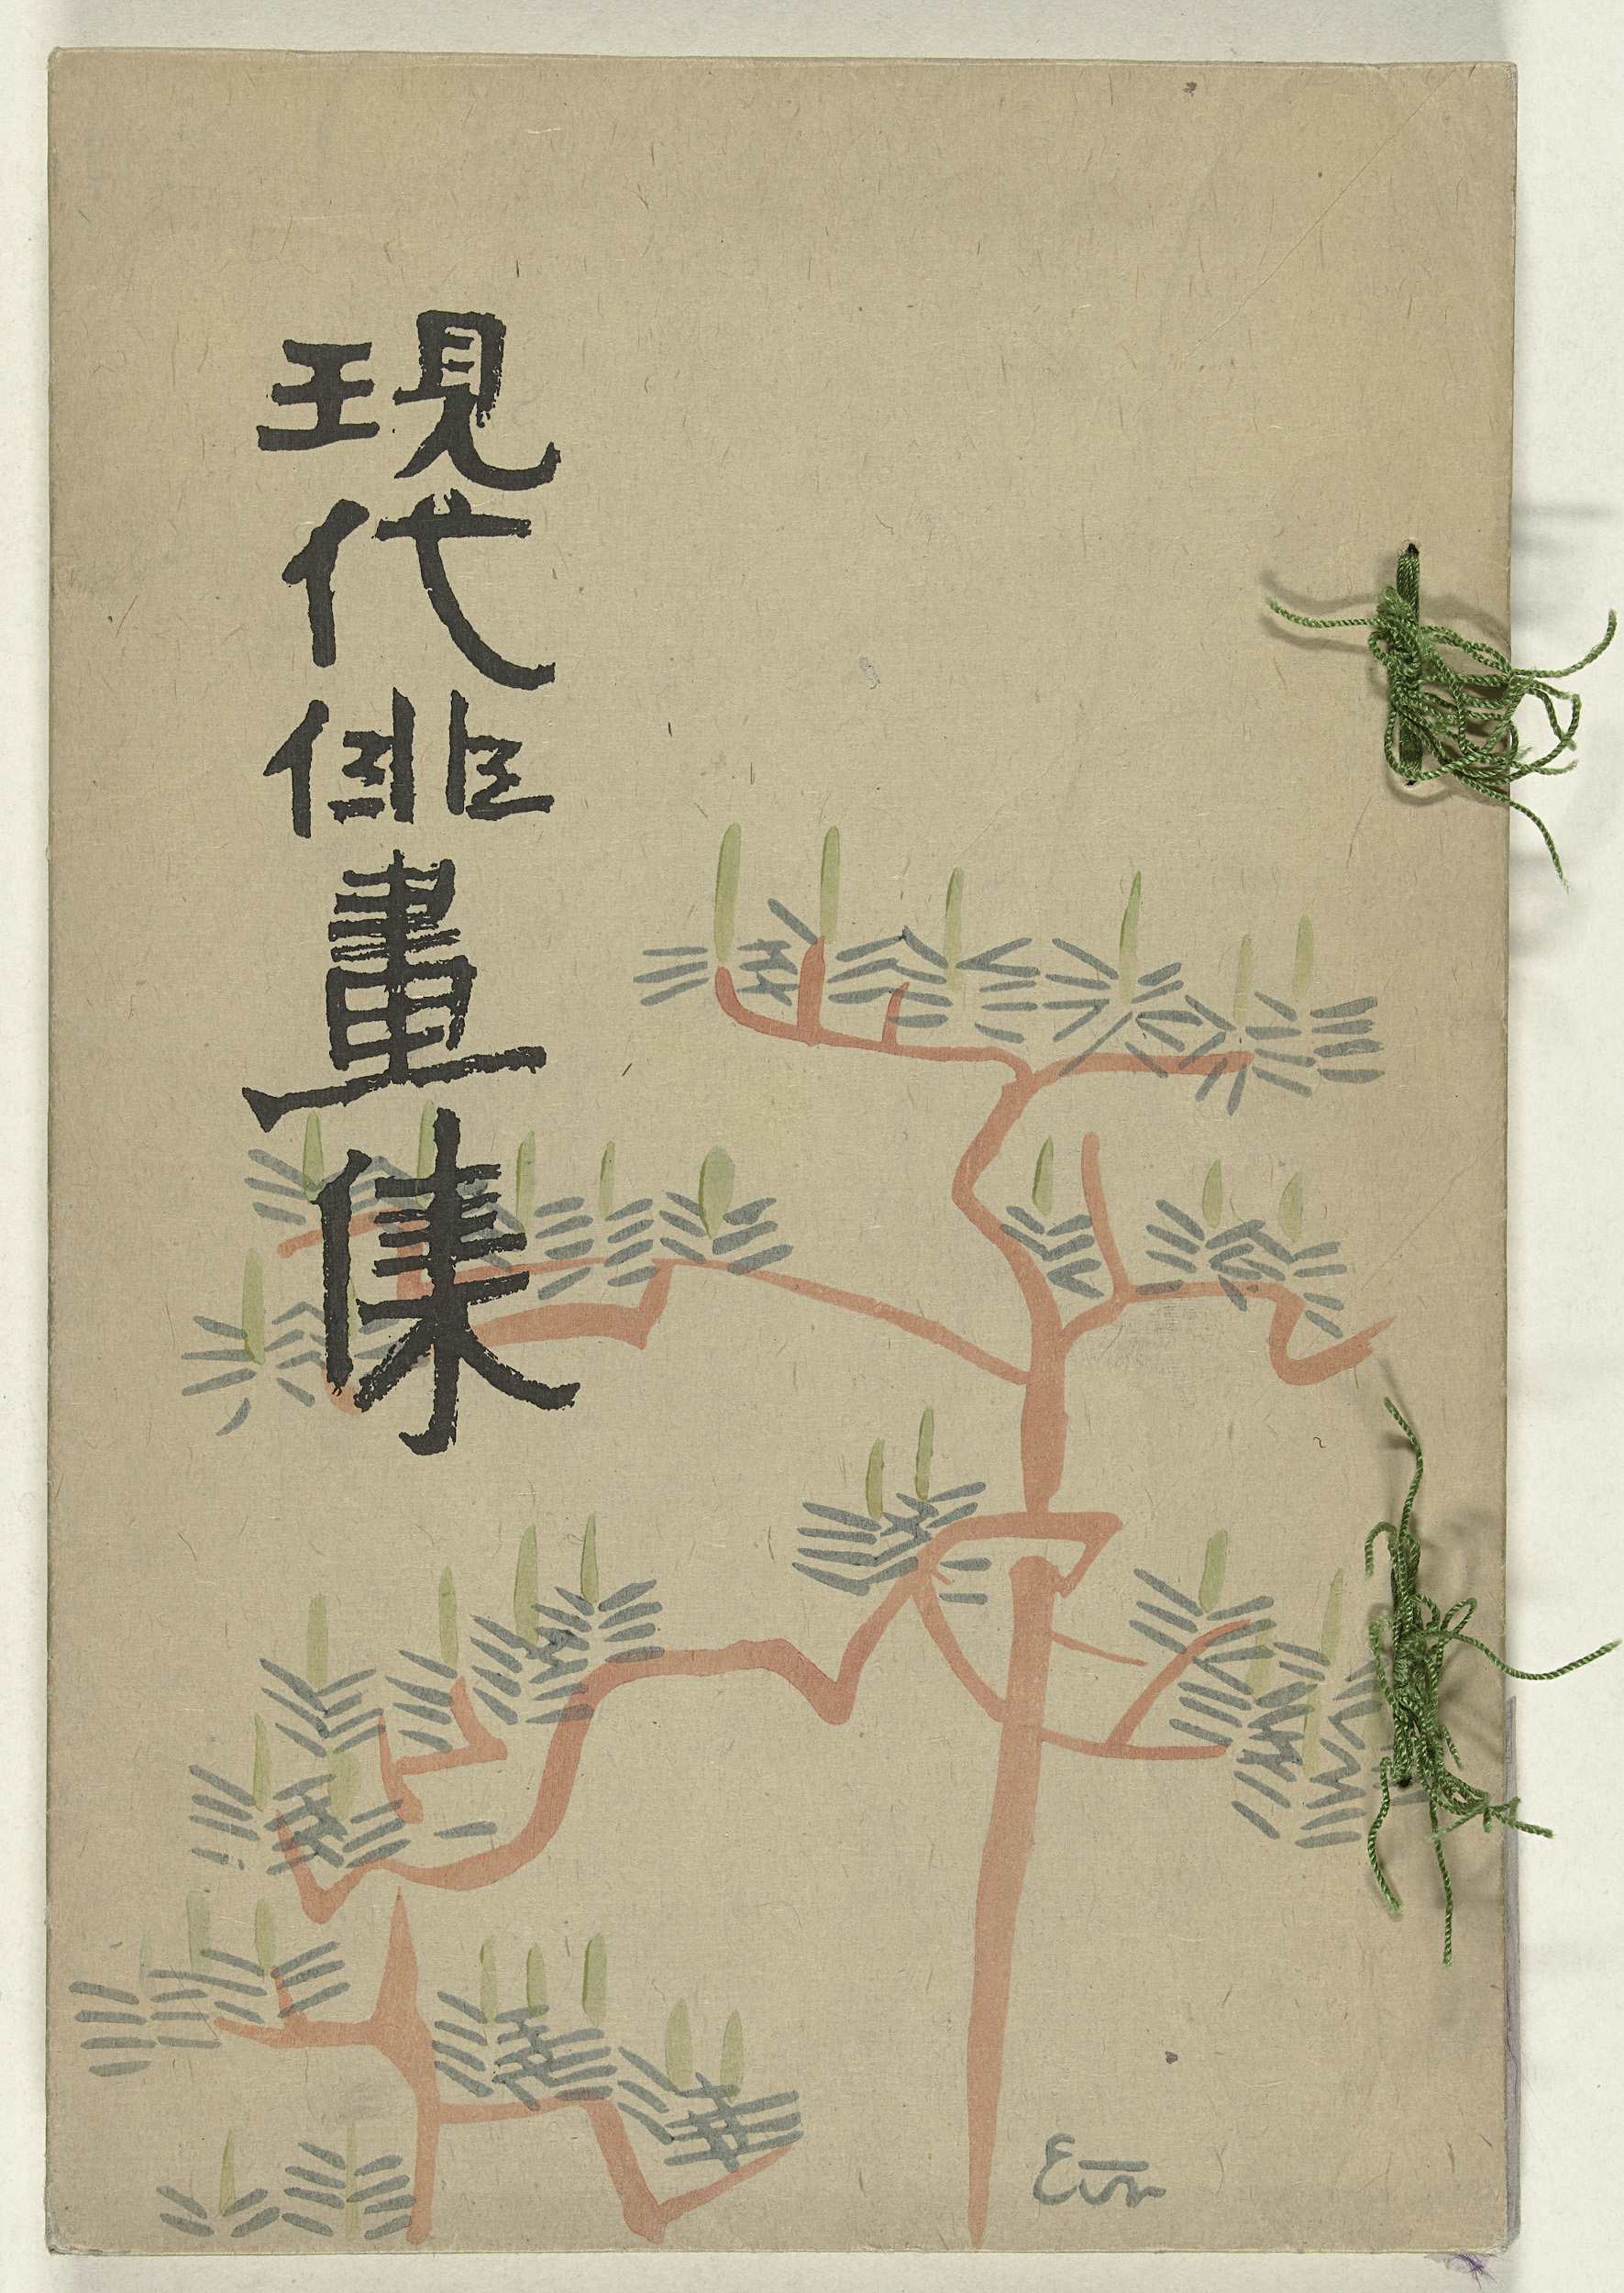 現代俳畫集